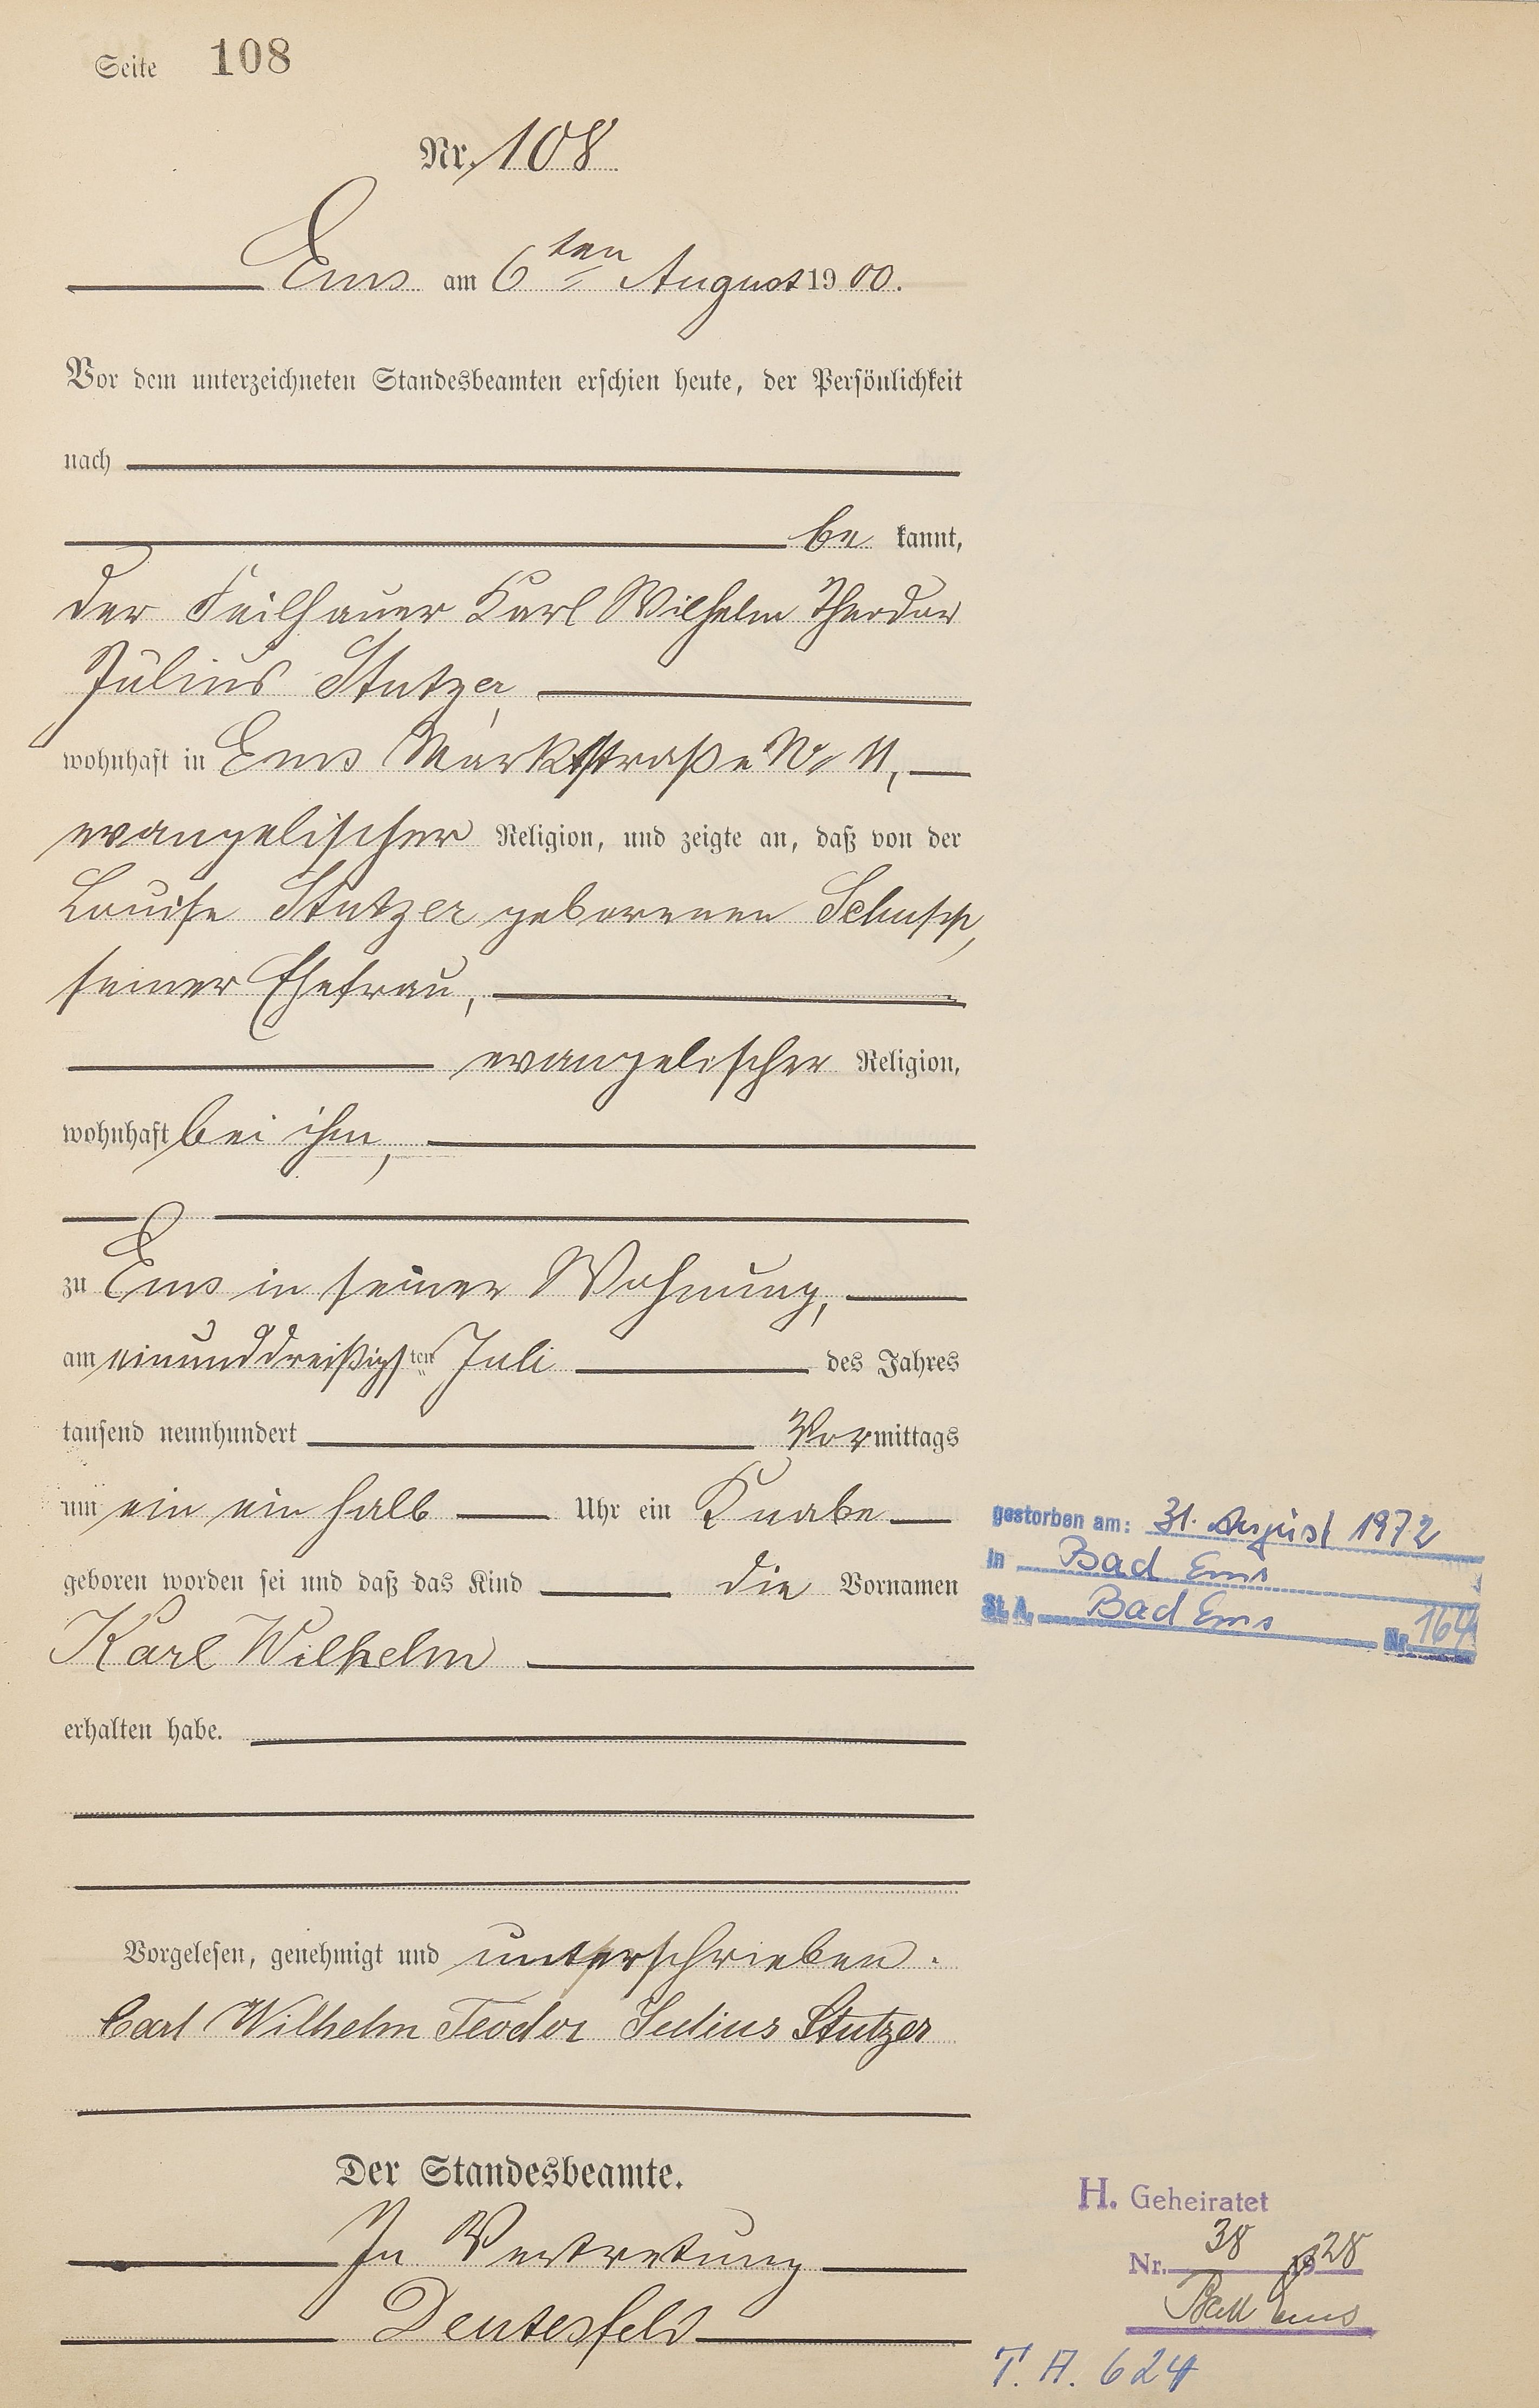 Seite 108
Nr. 108
Ems am 6ten August 1900.
Vor dem unterzeichneten Standesbeamten erschien heute, der Persönlichkeit
nach
be kannt,
der Feilhauer Karl Wilhelm Theodor
Julius Stutzer,
wohnhaft in Ems Marktstraße Nr 11,
evangelischer Religion, und zeigte an, daß von der
Louise Stutzer geborenen Schupp,
seiner Ehefrau,
evangelischer Religion,
wohnhaft bei ihm,
zu Ems in seiner Wohnung,
am einunddreißigsten Juli des Jahres
tausend neunhundert Vormittags
um ein ein halb Uhr ein Knabe
geboren worden sei und daß das Kind die Vornamen
Karl Wilhelm
erhalten habe.
Vorgelesen, genehmigt und unterschrieben.
Carl Wilhelm Teodor Julius Stutzer
Der Standesbeamte.
In Vertretung
Deutesfeld
gestorben am: 31. August 1972
in Bad Ems
St. A. Bad Ems Nr. 164
H. Geheiratet
Nr. 38 1928
Bad Ems
T. A. 624